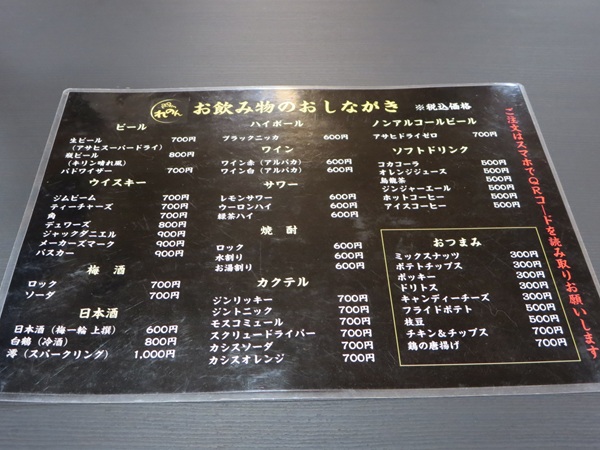 れのん
お飲み物のおしながき ※税込価格
ビール
生ビール 700円
（アサヒスーパードライ）
瓶ビール 800円
（キリン晴れ風）
バドワイザー 700円
ウイスキー
ジムビーム 700円
ティーチャーズ 700円
角 700円
デュワーズ 800円
ジャックダニエル 900円
メーカーズマーク 900円
バスカー 900円
梅酒
ロック 700円
ソーダ 700円
日本酒
日本酒（梅一輪 上撰） 600円
白鶴（冷酒） 800円
澪（スパークリング） 1,000円
ハイボール
ブラックニッカ 600円
ワイン
ワイン赤（アルパカ） 600円
ワイン白（アルパカ） 600円
サワー
レモンサワー 600円
ウーロンハイ 600円
緑茶ハイ 600円
焼酎
ロック 600円
水割り 600円
お湯割り 600円
カクテル
ジンリッキー 700円
ジントニック 700円
モスコミュール 700円
スクリュードライバー 700円
カシスソーダ 700円
カシスオレンジ 700円
ノンアルコールビール
アサヒドライゼロ 700円
ソフトドリンク
コカコーラ 500円
オレンジジュース 500円
烏龍茶 500円
ジンジャーエール 500円
ホットコーヒー 500円
アイスコーヒー 500円
おつまみ
ミックスナッツ 300円
ポテトチップス 300円
ポッキー 300円
ドリトス 300円
キャンディーチーズ 300円
フライドポテト 500円
枝豆 500円
チキン＆チップス 700円
鶏の唐揚げ 700円
ご注文はスマホでQRコードを読み取りお願いします